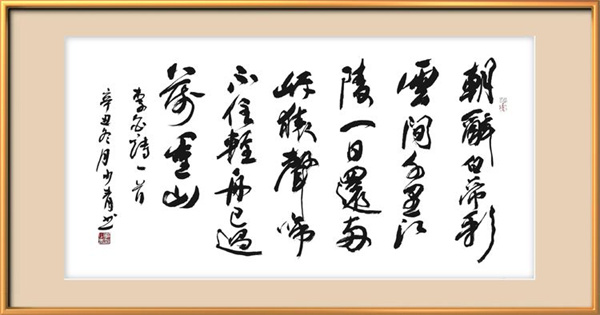 朝辭白帝彩
雲間千里江
陵一日還兩
岸猿聲啼
不住輕舟已過
萬重山
李白詩一首
辛丑冬月少青书